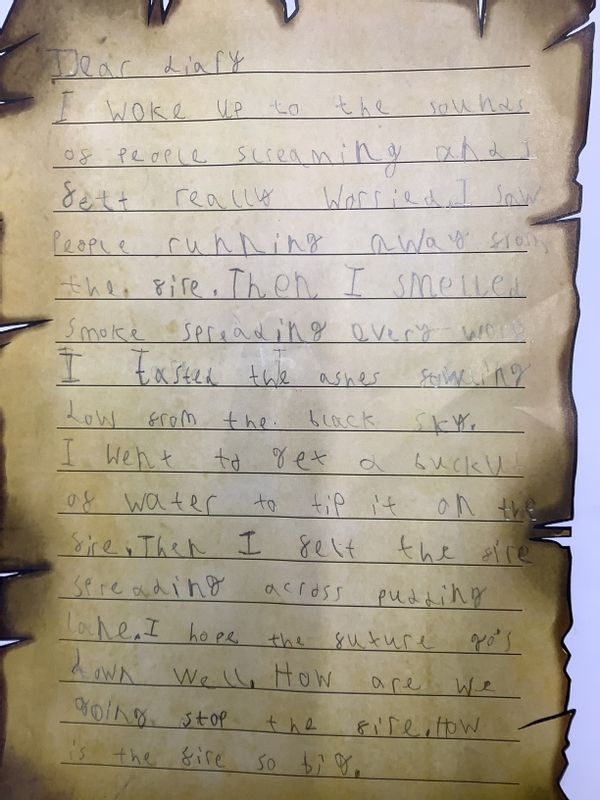 Dear diary
I woke up to the sounds
of people screaming and I
felt really worried. I saw
People running away from
the. fire. Then I smelled
smoke spreading avery
I tasted the ashes
down from the. black sky.
I went to get a buckut
of water to tip it on the
fire. Then I felt the fire
spreading across pudding
lane. I hope the future go's
down well. How are we
going stop the fire. How
is the fire so big.